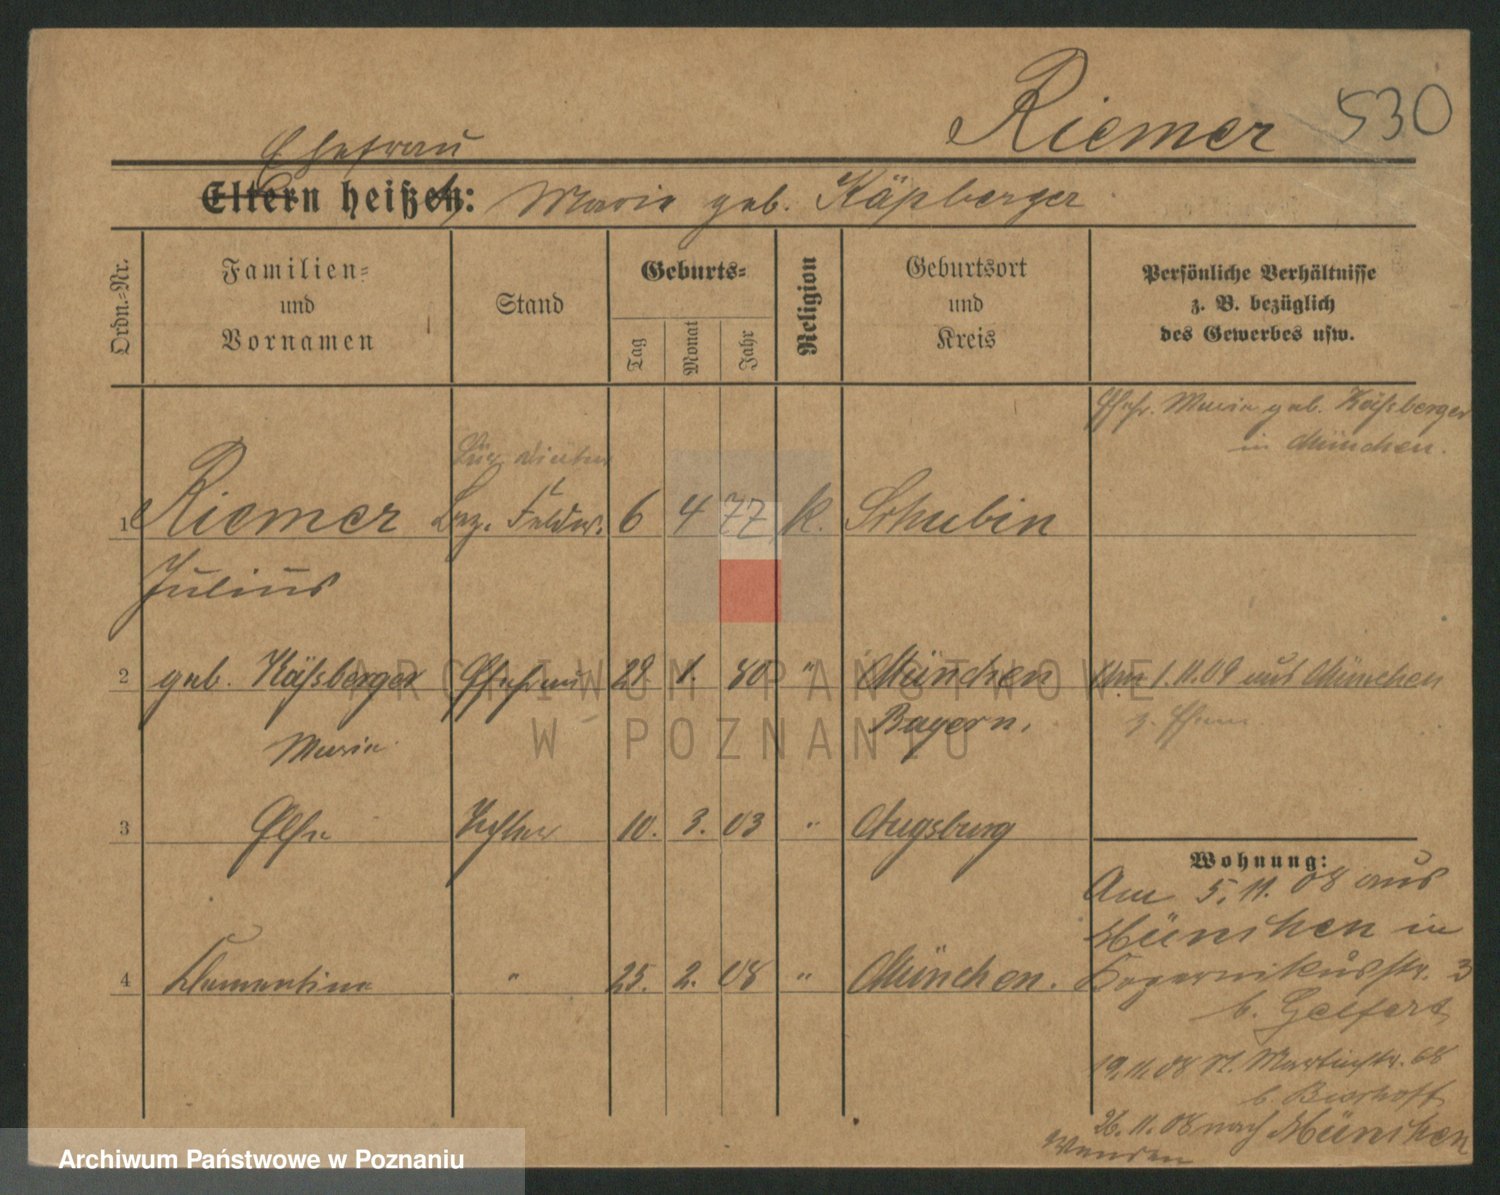 Riemer 530
Ehefrau
Eltern heißen: Marie geb. Käßberger
Ordn.-Nr.
Familien-
und
Vornamen
Stand
Geburts-
Tag
Monat
Jahr
Religion
Geburtsort
und
Kreis
Persönliche Verhältnisse
z. B. bezüglich
des Gewerbes usw.
Ehefr. Marie geb. Käßberger
in München.
1 Riemer 6 4 77 k. Schubin
Julius
2 geb. Käßberger Ehefrau 29 1. 80 " München 1.11.09 aus München
Marie Bayern.
3 Else Tochter 10. 3. 03 " Augsburg
Wohnung:
Am 5.11.08 aus
München in
4 Klementine " 25. 2. 08 " München. Kopernikusstr. 3
b. Gelfert
19.11.08 St. Martinstr. 68
b.
26.11.08 nach München
Wenden
ARCHIWUM PAŃSTWOWE
W POZNANIU
Archiwum Państwowe w Poznaniu